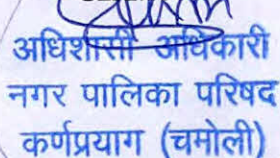 अधिशासी अधिकारी
नगर पालिका परिषद
कर्णप्रयाग (चमोली)